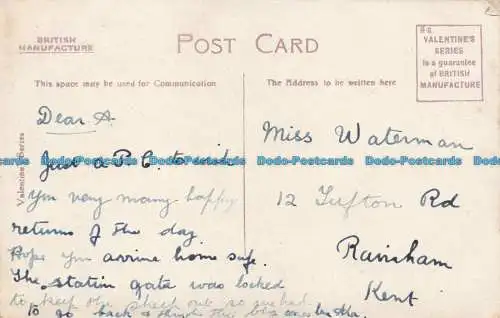 BRITISH
MANUFACTURE
POST CARD
No.
VALENTINE'S
SERIES
is a guarantee
of BRITISH
MANUFACTURE
This space may be used for Communication
The Address to be written here
Valentine's Series
Dear A.
Just a P.C. to wish
you very many happy
returns of the day
Hope you arrive home safe.
The station gate was locked
to keep the sheep out so we had
to go back &
Miss Waterman
12 Tufton Rd
Rainham
Kent
Dodo-Postcards Dodo-Postcards Dodo-Postcards Dodo-Postcards